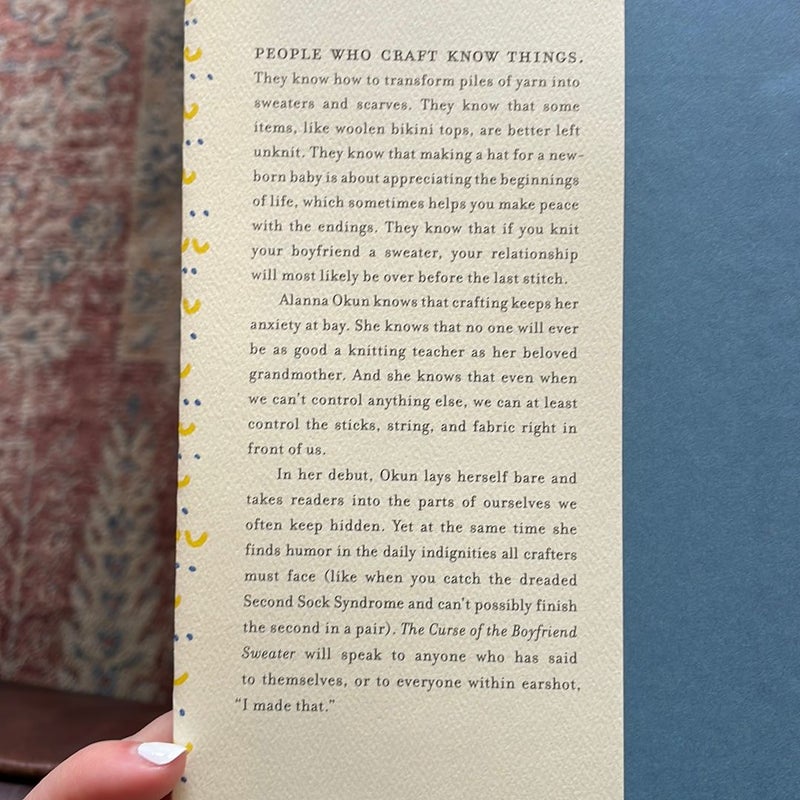 PEOPLE WHO CRAFT KNOW THINGS.
They know how to transform piles of yarn into
sweaters and scarves. They know that some
items, like woolen bikini tops, are better left
unknit. They know that making a hat for a new-
born baby is about appreciating the beginnings
of life, which sometimes helps you make peace
with the endings. They know that if you knit
your boyfriend a sweater, your relationship
will most likely be over before the last stitch.
Alanna Okun knows that crafting keeps her
anxiety at bay. She knows that no one will ever
be as good a knitting teacher as her beloved
grandmother. And she knows that even when
we can't control anything else, we can at least
control the sticks, string, and fabric right in
front of us.
In her debut, Okun lays herself bare and
takes readers into the parts of ourselves we
often keep hidden. Yet at the same time she
finds humor in the daily indignities all crafters
must face (like when you catch the dreaded
Second Sock Syndrome and can't possibly finish
the second in a pair). The Curse of the Boyfriend
Sweater will speak to anyone who has said
to themselves, or to everyone within earshot,
“I made that.”